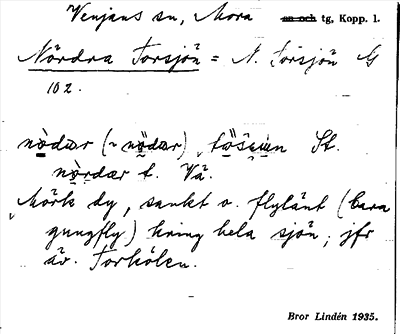 Venjans sn, Mora
sn och tg, Kopp. l.
Nördra Torsjön = N. Torsjön G
102.
nòdær (~ nödær) töšɛn St.
nòrdær t. Vä.
Mörk dy, sankt o. flylänt (bara
gungfly) kring hela sjön; jfr
äv. Torhölen.
Bror Lindén 1935.